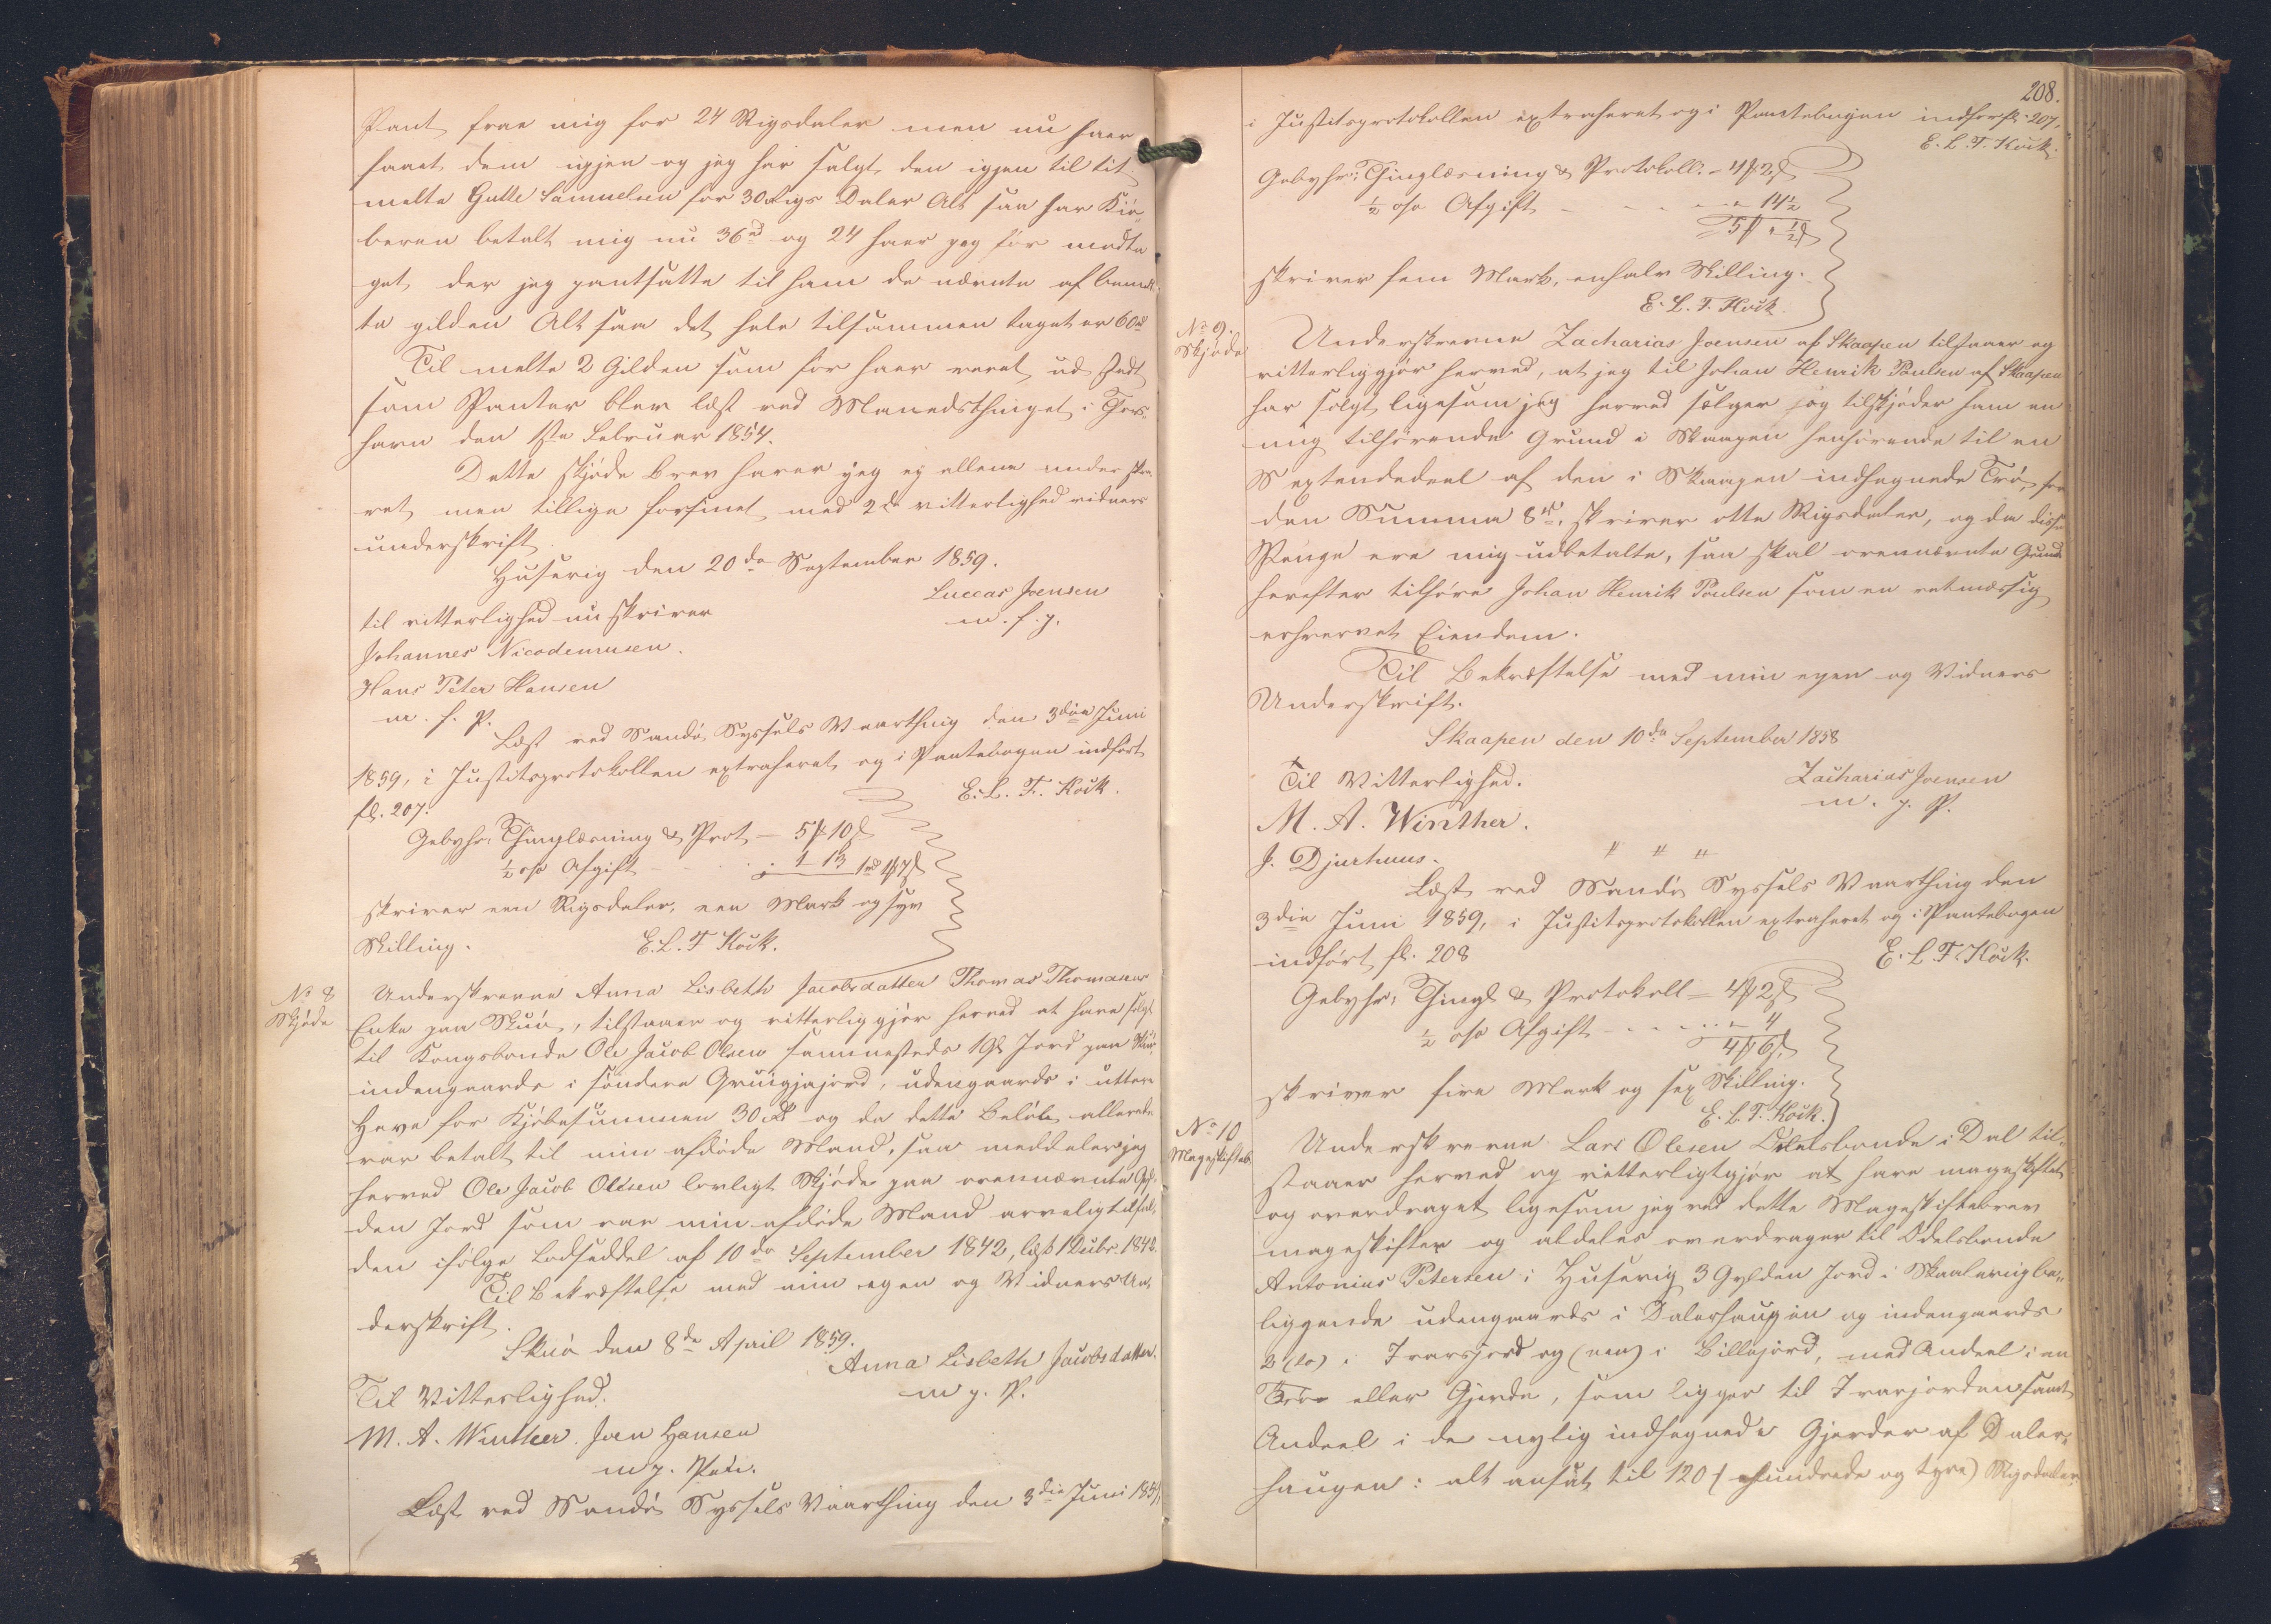 Pant fraa mig for 24 Rigsdaler men nu haver
faaet dem igjen og jeg har salgt den igjen til tit
melte Gutte Samuelsen for 30 Rigs Daler Alt saa har Kiø„
beren betalt mig nu 36rd og 24 haver jeg før modta
get der jeg pantsatte til ham de nævnte af bemelt
te gilden Alt saa det hele tilsammen taget er 60rd
Til melte 2 Gilden som før haver været ud sadt
som Panter blev læst ved Manedsthinget i Thors„
havn den 1ste Februar 1854.
Dette skjøde brev haver jeg ej allene under skre
vet men tillige forsinet med 2de vitterlighed vidners
underskrift.
Husevig den 20de September 1859.
Luccas Joensen
til vitterlighed unskriver
m. f. p.
Johannes Nicodemusen.
Hans Peter Hansen
m. f. P.
Læst ved Sandø Syssels Vaarthing den 3die Juni
1859, i Justitsprotokollen extraheret og i Pantebogen indført
fl. 207.
E. L. T. Kock.
Gebyhr: Thinglæsning & Prot. – 5 10
½ o/o Afgift – . . . 1 13 1rd 1 7
skriver een Rigsdaler, een Mark og syv
Skilling.
E. L. T Kock.
No 8
Skjøde
Underskrevne Anna Lisbeth Jacobsdatter Thomas Thomasens
Enke paa Skuø, tilstaaer og vitterliggjør herved at have solgt
til Kongsbonde Ole Jacob Olesen sammesteds 1 Gl Jord paa Skuø,
indengaards i søndere Gruigjajord, udengaards i uttere
Heve for Kjøbesummen 30 rd og da dette Beløb allerede
var betalt til min afdøde Mand, saa meddeler jeg
herved Ole Jacob Olesen lovligt Skjøde paa ovennævnte Gyl„
den Jord som var min afdøde Mand arveligt tilfal„
den ifølge Lodseddel af 10de September 1842, læst 1 Decbr. 1842.
Til Bekræftelse med min egen og Vidners Un„
derskrift.
Skuø den 8de April 1859.
Anna Lisbeth Jacobsdatter.
Til Vitterlighed.
m p. P.
M. A. Winther. Joen Hansen
m p. Pen.
Læst ved Sandø Syssels Vaarthing den 3die Juni 1859,
208.
i Justitsprotokollen extraheret og i Pantebogen indført fl. 207.
E. L. T. Kock.
Gebyhr: Thinglæsning & Protokoll. – 4 2
½ o/o Afgift – . . . 14½
5 " ½
skriver fem Mark, enhalv Skilling.
E. L. T. Kock.
No 9.
Skjøde
Underskrevne Zacharias Joensen af Skaapen tilstaaer og
vitterliggjør herved, at jeg til Johan Henrik Poulsen af Skaapen
har solgt ligesom jeg herved sælger og tilskjøder ham en
mig tilhørende Grund i Skaapen henhørende til en
Sextendedeel af den i Skaapen indhegnede Trø, for
den Summa 8rd, skriver otte Rigsdaler, og da disse
Penge ere mig udbetalte, saa skal ovennævnte Grund
herefter tilhøre Johan Henrik Poulsen som en retmæssig
erhvervet Eiendom.
Til Bekræftelse med min egen og Vidners
Underskrift.
Skaapen den 10de September 1858
Til Vitterlighed.
Zacharias Joensen
m. p. P.
M. A. Winther.
J. Djurhuus.
Læst ved Sandø Syssels Vaarthing den
3die Juni 1859, i Justitsprotokollen extraheret og i Pantebogen
indført fl. 208
E. L. T. Kock.
Gebyhr, Thingl & Protokoll – 4 2
½ o/o Afgift – . . . 4
4 6
skriver fire Mark og sex Skilling.
E. L. T. Kock.
No 10
Mageskifteb.
Underskrevne Lars Olesen Odelsbonde i Dal til„
staaer herved og vitterligtgjør at have mageskiftet
og overdraget ligesom jeg ved dette Mageskiftebrev
mageskifter og aldeles overdrager til Odelsbonde
Antonius Petersen i Husevig 3 Gylden Jord i Skaalevig be„
liggende udengaards i Dalerhaugen og indengaards
2 (to) i Trarsjord og (een) i Billajord, med Andeel i en
Trø eller Gjerde, som ligger til Trarjorden samt
Andeel i de nylig indhegnede Gjerder af Daler„
haugen: alt ansat til 120 (hundrede og tyve) Rigsdaler.